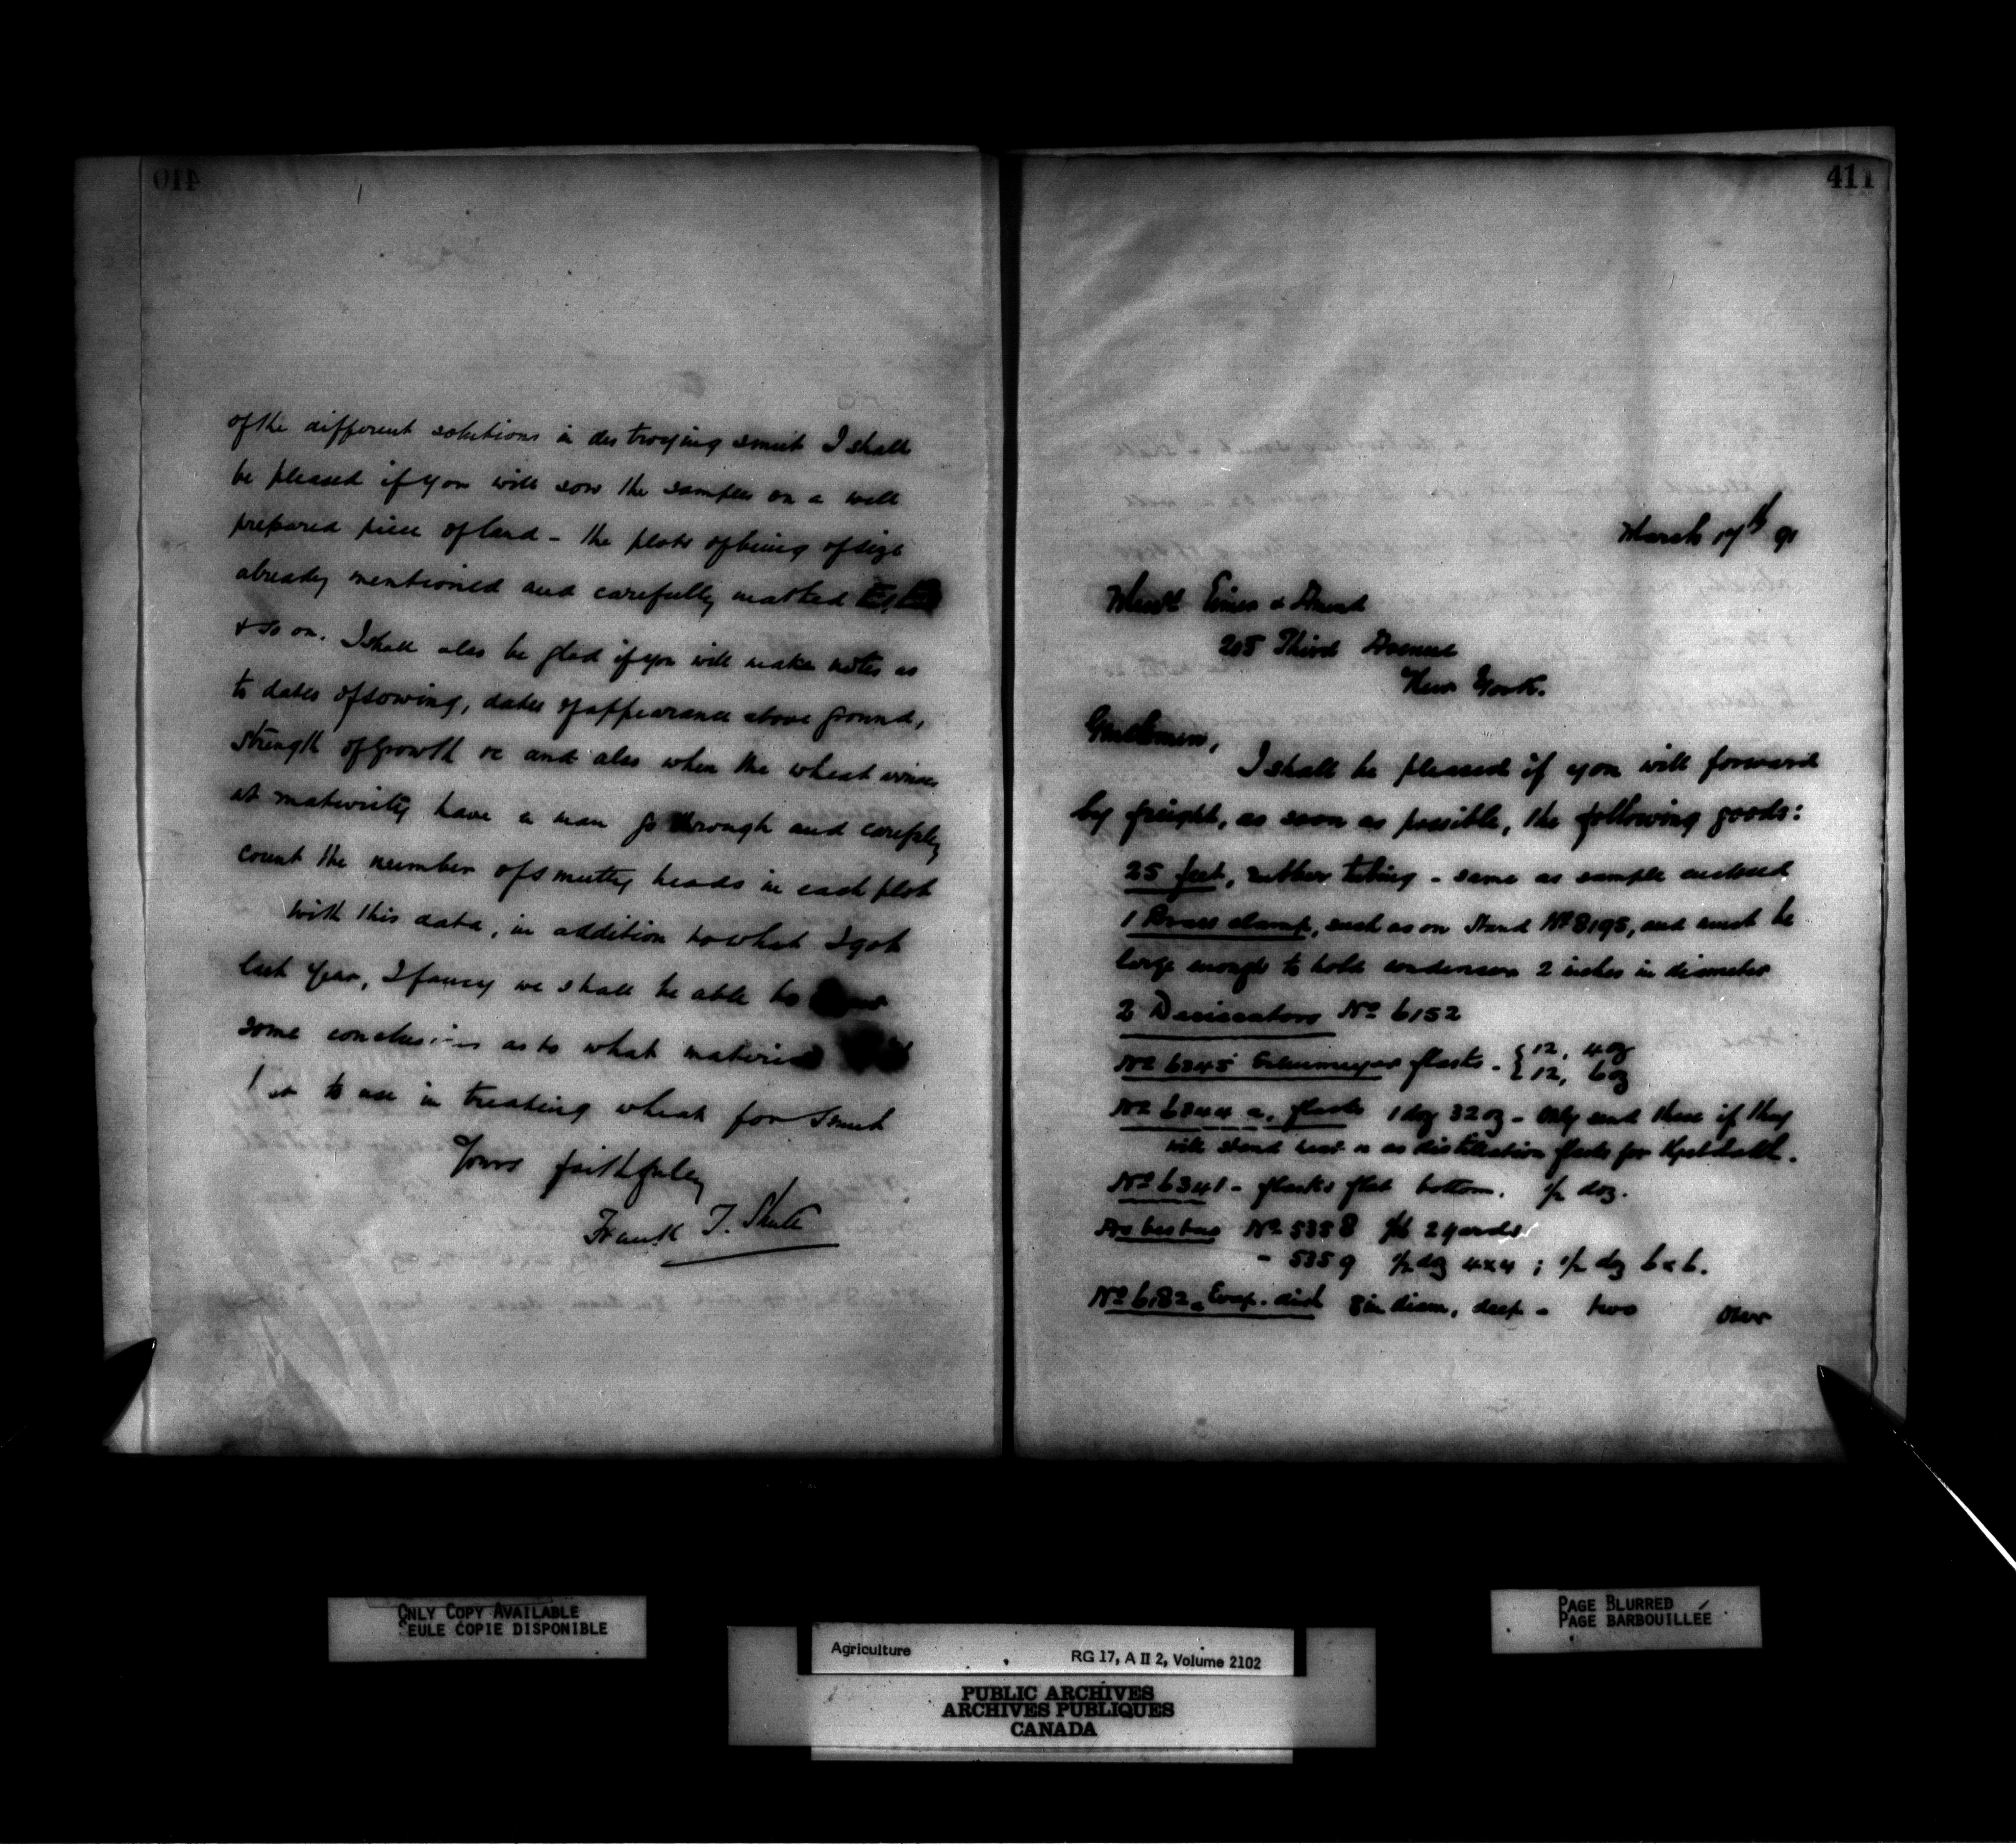 410
of the different solutions in destroying smut I shall
be pleased if you will sow the samples on a well
prepared piece of land - the plots of being of size
already mentioned and carefully marked
& so on. I shall also be glad if you will make notes as
to dates of sowing, dates of appearance above ground,
strength of growth &c and also when the wheat arrives
at maturity have a man go through and carefully
count the number of smutty heads in each plot
With this data, in addition to what I got
last year, I fancy we shall be able to
some conclusions as to what material
to use in treating wheat for Smut
Yours faithfully
Frank T. Shutt
411
March 17th 91
Messrs Eimer & Amend
205 Third Avenue
New York.
Gentlemen,
I shall be pleased if you will forward
by freight, as soon as possible, the following goods:
25 feet, rubber tubing - same as sample enclosed
1 Brass clamp, such as on Stand No 8195, and must be
large enough to hold condenser 2 inches in diameter
2 Desiccators No 6152
No 6345 Erlenmeyer flasks - { 12, 4 oz
{ 12, 6 oz
No 6344 a, flasks 1 doz 32 oz - Only send these if they
will stand heat as distillation flasks for Kjeldahl.
No 6341 - flasks flat bottom. ½ doz.
Asbestos No 5358 2 yards
- 5359 ½ doz 4x4 ; ½ doz 6x6.
No 6182 Evap. dish 8 in diam, deep - two
Over
ONLY COPY AVAILABLE
SEULE COPIE DISPONIBLE
PAGE BLURRED
PAGE BARBOUILLÉE
Agriculture RG 17, A II 2, Volume 2102
PUBLIC ARCHIVES
ARCHIVES PUBLIQUES
CANADA